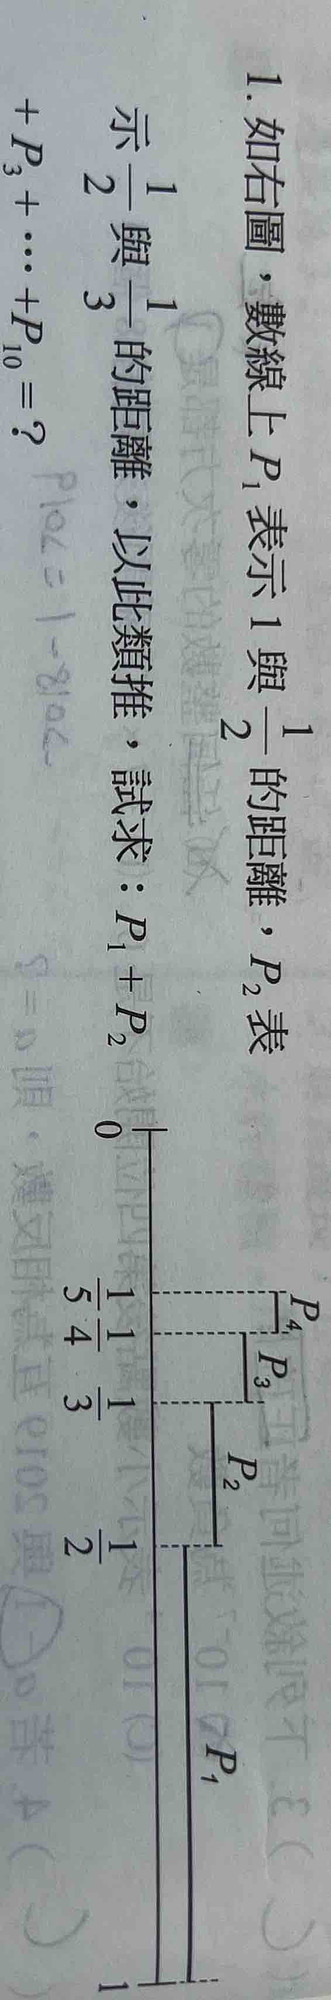 1. 如右圖，數線上 P₁ 表示 1 與 1/2 的距離，P₂ 表
示 1/2 與 1/3 的距離，以此類推，試求：P₁ + P₂
+ P₃ + … + P₁₀ = ?
P₄
P₃
P₂
P₁
0 1/5 1/4 1/3 1/2 1